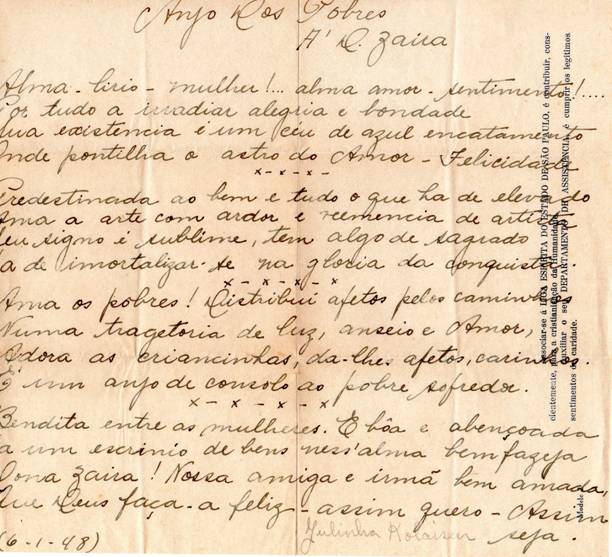 Anjo dos Pobres
A' D. Zaira
Alma - lirio - mulher!... alma amor - sentimento!....
Por tudo a irradiar alegria e bondade
Sua existencia é um céu de azul encatamento
Onde pontilha o astro do Amor - Felicidade
x - x - x - x
Predestinada ao bem e tudo o que ha de elevado
Ama a arte com ardor e veemencia de artista
Seu signo é sublime, tem algo de sagrado
a de imortalizar-se na gloria da conquista.
x - x - x - x - x
Ama os pobres! Distribui afetos pelos caminhos
Numa tragetoria de luz, anseio e Amor,
Adora as criancinhas, da-lhes afetos, carinhos.
É um anjo de consolo ao pobre sofredor.
x - x - x - x
Bendita entre as mulheres. E bôa e abençoada
a um escrinio de bens ness'alma bemfazeja
Dona Zaira! Nossa amiga e irmã bem amada,
Que Deus faça-a feliz - assim quero - Assim
seja.
Julinha
(6-1-48)
associar-se á LIGA ESPIRITA DO ESTADO DE SÃO PAULO, é contribuir, cons-
cientemente, para a cristianização da Humanidade.
Auxiliar o seu DEPARTAMENTO DE ASSISTENCIA é cumprir os legitimos
sentimentos de caridade.
Modelo